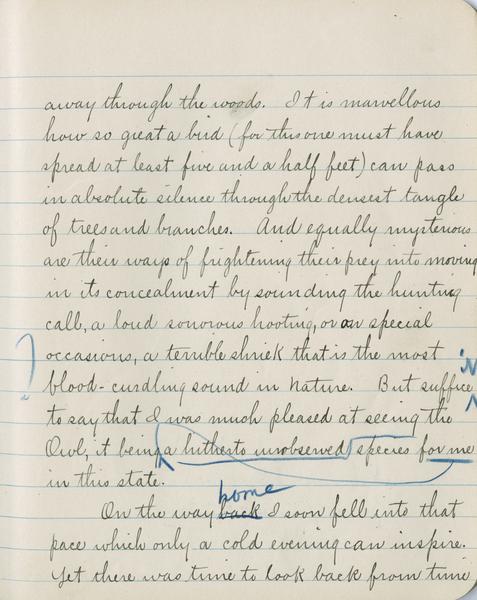 away through the woods. It is marvellous
how so great a bird (for this one must have
spread at least five and a half feet) can pass
in absolute silence through the densest tangle
of trees and branches. And equally mysterious
are their ways of frightening their prey into moving
in its concealment by sounding the hunting
call, a loud sonorous hooting, or on special
occasions, a terrible shriek that is the most
? blood-curdling sound in nature. But suffice it
to say that I was much pleased at seeing the
Owl, it being a hitherto unobserved species for me
in this state.
home
On the way back I soon fell into that
pace which only a cold evening can inspire.
Yet there was time to look back from time